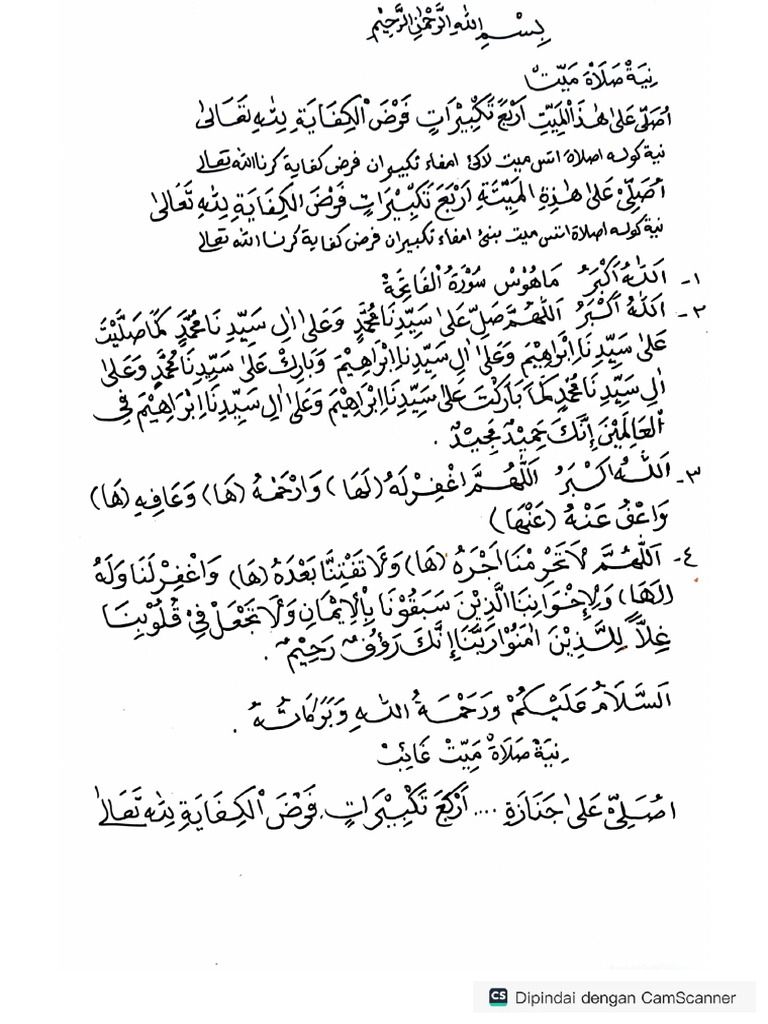 بِسْمِ اللهِ الرَّحْمٰنِ الرَّحِيْمِ
نِيَةْ صَلَاةْ مَيِّتْ
اُصَلِّى عَلىٰ هٰذَالْمَيِّتِ اَرْبَعَ تَكْبِيْرَاتٍ فَرْضَ الْكِفَايَةِ لِلّٰهِ تَعَالىٰ
نية كوله اصلاة اتس ميت لاكي امفاء تكبيران فرض كفاية كرنا الله تعالى
اُصَلِّيْ عَلىٰ هٰذِهِ الْمَيِّتَةِ اَرْبَعَ تَكْبِيْرَاتٍ فَرْضَ الْكِفَايَةِ لِلّٰهِ تَعَالىٰ
نية كوله اصلاة اتس ميت بنئ امفاء تكبيران فرض كفاية كرنا الله تعالى
١- اَللّٰهُ اَكْبَرُ مَاهُوْسْ سُوْرَةُ الْفَاتِحَةْ
٢- اَللّٰهُ اَكْبَرُ اَللّٰهُمَّ صَلِّ عَلىٰ سَيِّدِنَا مُحَمَّدٍ وَعَلىٰ اٰلِ سَيِّدِنَا مُحَمَّدٍ كَمَا صَلَّيْتَ
عَلىٰ سَيِّدِنَا اِبْرَاهِيْمَ وَعَلىٰ اٰلِ سَيِّدِنَا اِبْرَاهِيْمَ وَبَارِكْ عَلىٰ سَيِّدِنَا مُحَمَّدٍ وَعَلىٰ
اٰلِ سَيِّدِنَا مُحَمَّدٍ كَمَا بَارَكْتَ عَلىٰ سَيِّدِنَا اِبْرَاهِيْمَ وَعَلىٰ اٰلِ سَيِّدِنَا اِبْرَاهِيْمَ فِى
الْعَالَمِيْنَ اِنَّكَ حَمِيْدٌ مَجِيْدٌ .
٣- اَللّٰهُ اَكْبَرُ اَللّٰهُمَّ اغْفِرْلَهُ (لَهَا) وَارْحَمْهُ (هَا) وَعَافِهِ (هَا)
وَاعْفُ عَنْهُ (عَنْهَا)
٤- اَللّٰهُمَّ لَا تَحْرِمْنَا اَجْرَهُ (هَا) وَلَا تَفْتِنَّا بَعْدَهُ (هَا) وَاغْفِرْلَنَا وَلَهُ
(لَهَا) وَلِاِخْوَانِنَا الَّذِيْنَ سَبَقُوْنَا بِالْاِيْمَانِ وَلَا تَجْعَلْ فِيْ قُلُوْبِنَا
غِلًّا لِلَّذِيْنَ اٰمَنُوْا رَبَّنَا اِنَّكَ رَؤُفٌ رَحِيْمٌ .
اَلسَّلَامُ عَلَيْكُمْ وَرَحْمَةُ اللهِ وَبَرَكَاتُهُ .
نِيَةْ صَلَاةْ مَيِّتْ غَائِبْ
اُصَلِىّ عَلىٰ جَنَازَةِ .... اَرْبَعَ تَكْبِيْرَاتٍ. فَرْضَ الْكِفَايَةِ لِلّٰهِ تَعَالىٰ
CS Dipindai dengan CamScanner